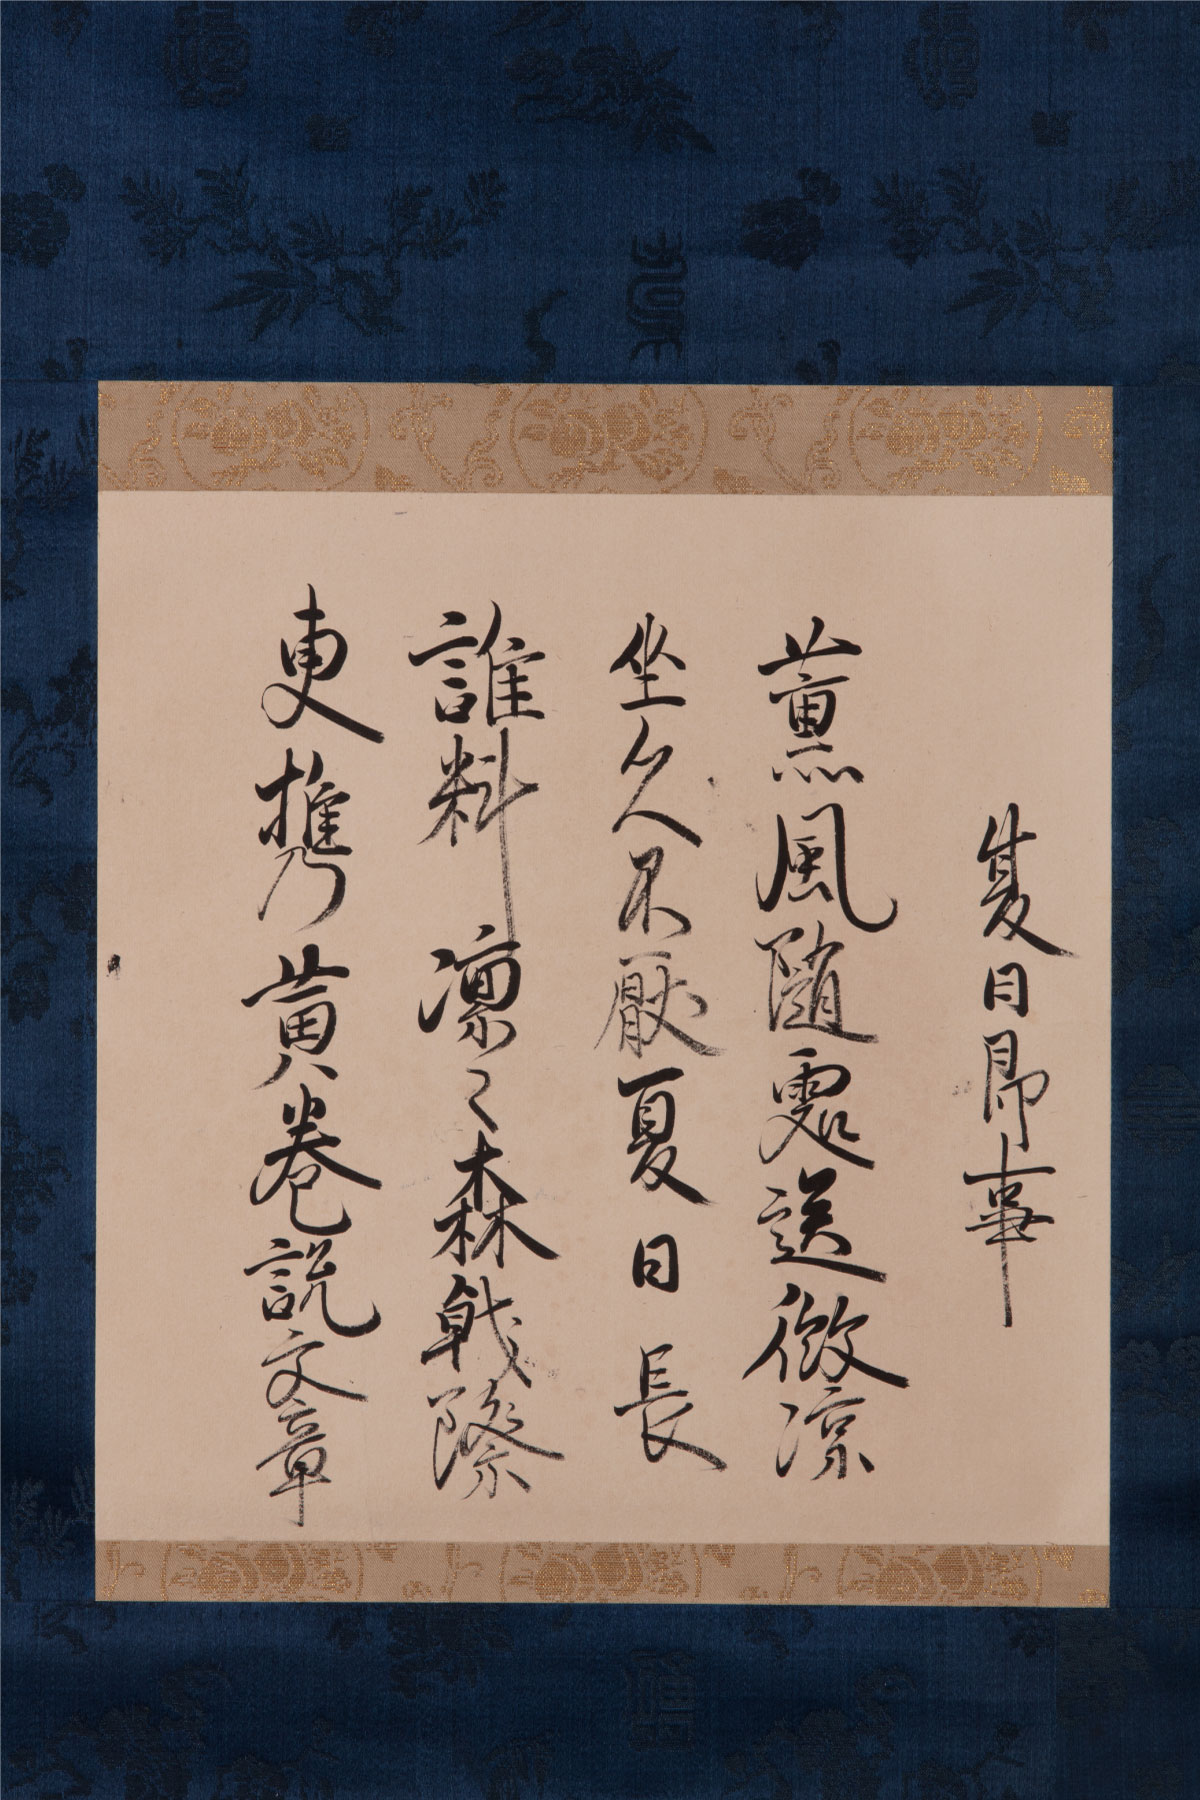 夏日即事
薫風随處送微涼
坐久不厭夏日長
誰料凛〻森戟際
更携黄巻説文章